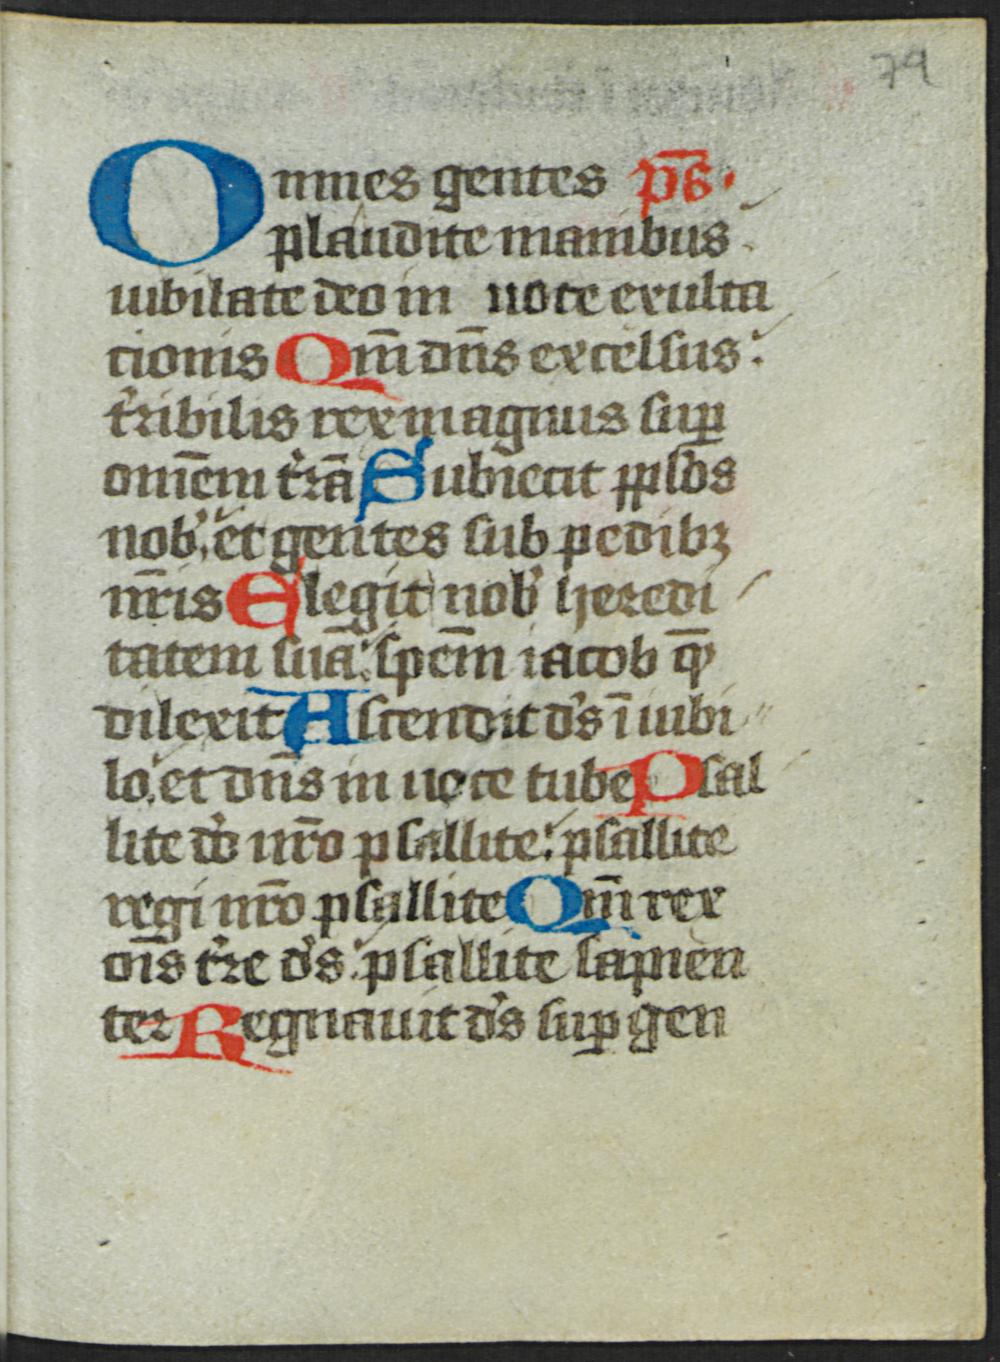 74
Omnes gentes ps̄.
plaudite manibus
iubilate deo in uoce exulta
tionis Qm̄ dn̄s excelsus:
t̓ribilis rex magnus suꝑ
om̄em t̓rā Subiecit ꝓplōs
nob̓, et gentes sub pedibꝫ
nr̄is Elegit nob̓ heredi
tatem suā: spēm iacob q̄
dilexit Ascendit d̓s ī iubi
lo, et dn̄s in uoce tube Psal
lite d̓o nr̄o psallite: psallite
regi nr̄o psallite Qm̄ rex
oīs t̓re d̓s: psallite sapien
ter Regnauit d̓s suꝑ gen